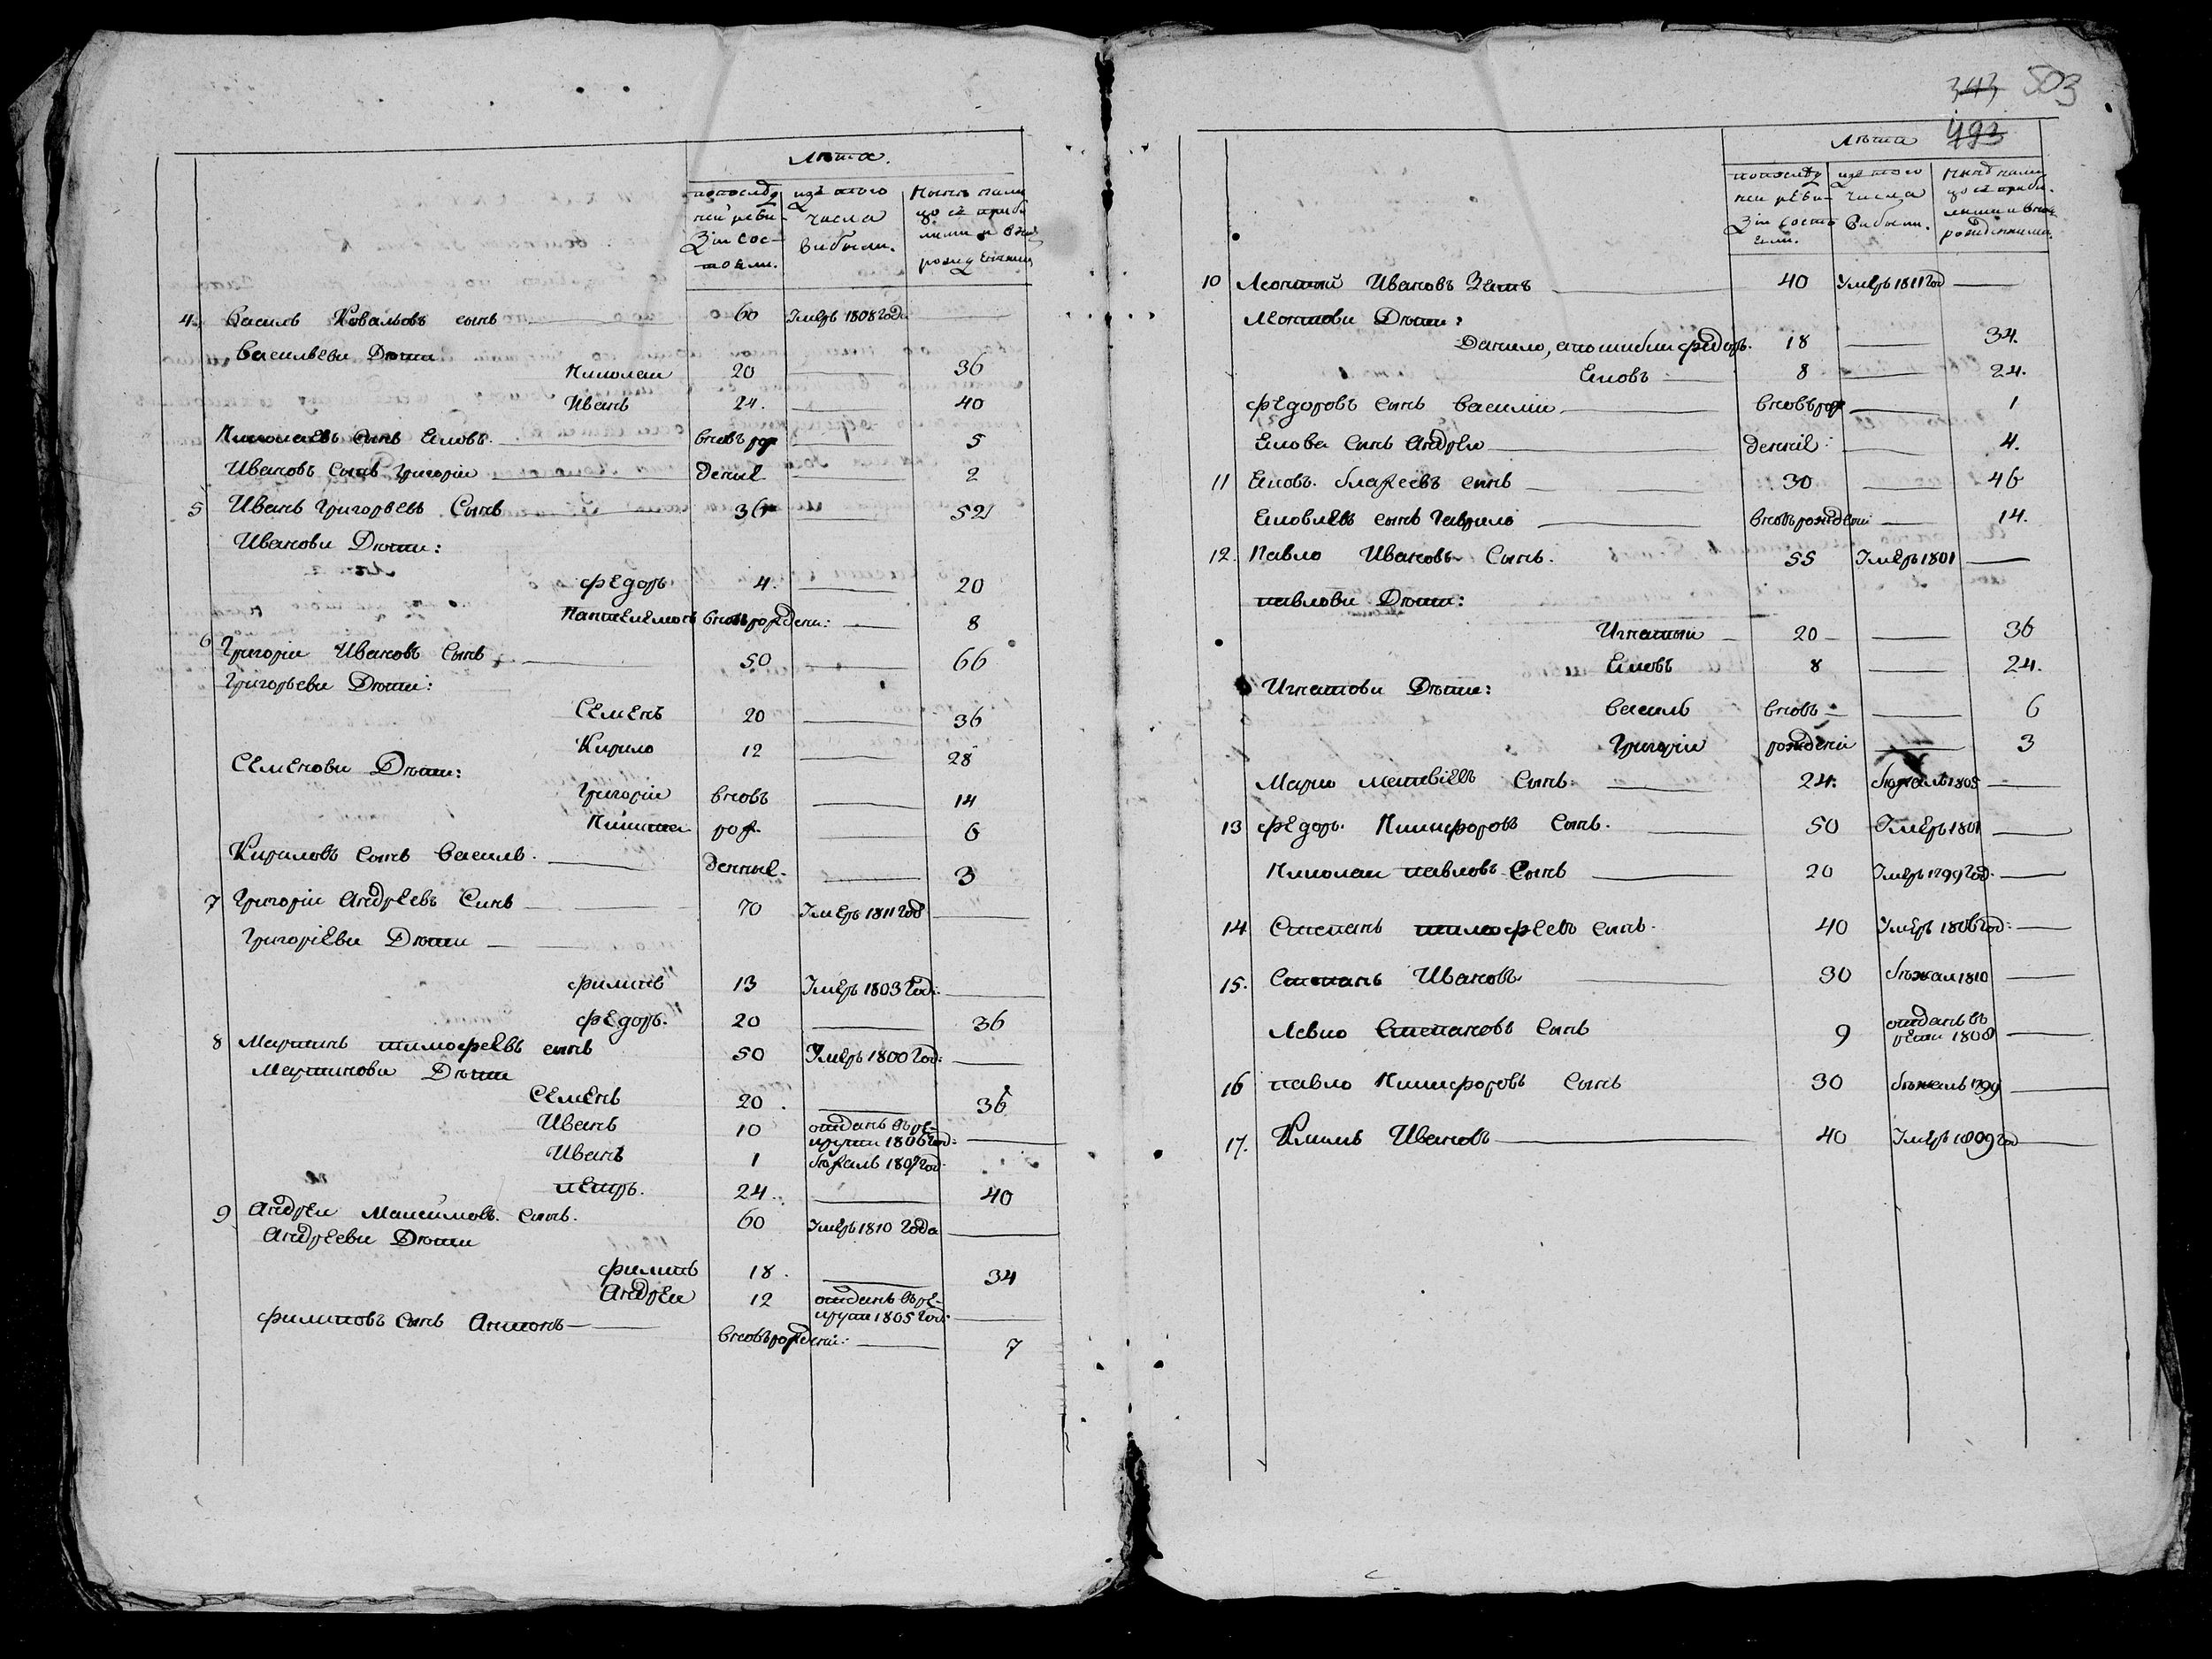 Лѣта.
по послѣд
ней реви-
зіи сос-
тояли.
изъ того
числа
выбыли.
нынѣ нали
цо съ прибы
лыми и вновь
рожденными
4. Василь Ковальовъ сынъ 60 Умеръ 1808 года
Васильеви Дѣти
Николаи 20 36
Иванъ 24. 40
Николаевъ сынъ Яковъ. вновь рож 5
Ивановъ сынъ Григоріи денніе 2
5 Иванъ Григорьевъ Сынъ 36 52
Иванови Дѣти:
Федоръ 4. 20
Пантелемонъ вновь рождени: 8
6 Григоріи Ивановъ Сынъ 50 66
Григорьеви Дѣти:
Семенъ 20 36
Кирило 12 28
Семенови Дѣти:
Григоріи вновь 14
Никита рож 6
Кириловъ сынъ Василь. денные. 3
7 Григоріи Андреевъ Синъ 70 Умеръ 1811 год
Григоріеви Дѣти
Филипъ 13 Умеръ 1803 год:
Федоръ. 20 36
8 Мартинъ Тимофеевъ синъ 50 Умеръ 1800 год:
Мартинови Дѣти
Семенъ 20. 36
Иванъ 10 отданъ въ ре-
крути 1806 год:
Иванъ 1 бѣжалъ 1807 год.
Петръ. 24. 40
9 Андреи Максимовъ. сынъ. 60 Умеръ 1810 года
Андрееви Дѣти
Филипъ 18. 34
Андреи 12 отданъ въ ре-
крути 1805 год:
Филиповъ сынъ Антонъ вновь рождени: 7
343 503
493
Лѣта
по послѣд
ней реви-
зіи состо
яли.
изъ того
числа
выбыли.
нынѣ нали
цо съ прибы-
лыми и вновь
рожденними.
10 Леонтий Ивановъ Зять 40 Умеръ 1811 год
Леонтови Дѣти:
Данило, а по шибки Федоръ. 18 34.
Яковъ 8 24.
Федоровъ сынъ Василіи вновь рож 1
Якова сынъ Андреи денніе: 4.
11 Яковъ. Влажеевъ синъ 30 46
Яковлевъ синъ Гаврило вновь рождени 14.
12. Павло Ивановъ Сынъ. 55 Умеръ 1801
Павлови Дѣти:
Игнатии 20 36
Яковъ 8 24.
Игнатови Дѣти:
Василь вновь 6
Григоріи рождени 3
Марко Матвіевъ Сынъ. 24. бѣжалъ 1805
13 Федоръ. Никифоровъ Сынъ. 50 Умеръ 1801
Николаи Павловъ Сынъ 20 Умеръ 1799 год.
14 Степанъ Тимофеевъ сынъ. 40 Умеръ 1806 год:
15. Степанъ Ивановъ 30 бѣжал 1810
Левко Степановъ Сынъ 9 отданъ въ
1808
16 Павло Никифоровъ Сынъ 30 бѣжалъ 1799
17. Климъ Ивановъ 40 Умеръ 1809 го